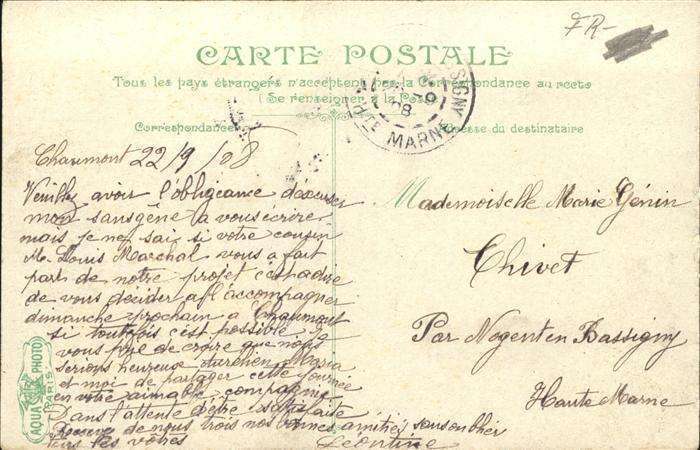 FR-
CARTE POSTALE
Tous les pays étrangers n'acceptent pas la Correspondance au recto
(Se renseigner à la Poste)
Correspondance
Adresse du destinataire
SIGNY
08
HTE MARNE
Chaumont 22/9/08
Veuillez avoir l'obligeance d'excuser
mon sansgêne a vous écrirer
mais je ne sais si votre cousin
Mr Louis Marchal vous a fait
part de notre projet c'estadire
de vous décider a l'accompagner
dimanche prochain a Chaumont
si toutefois c'est possible je
vous prie de croire que nous
serions heureuse Aurélien Maria
et moi de partager cette journée
en votre aimable compagnie
Dans l'attente d'être satisfaite
Recevez de nous trois nos bonnes amitiés sans oublier
tous les vôtres
Léontine
Mademoiselle Marie Génin
Chivet
Par Nogent en Bassigny
Haute Marne
AQUA PHOTO
PARIS